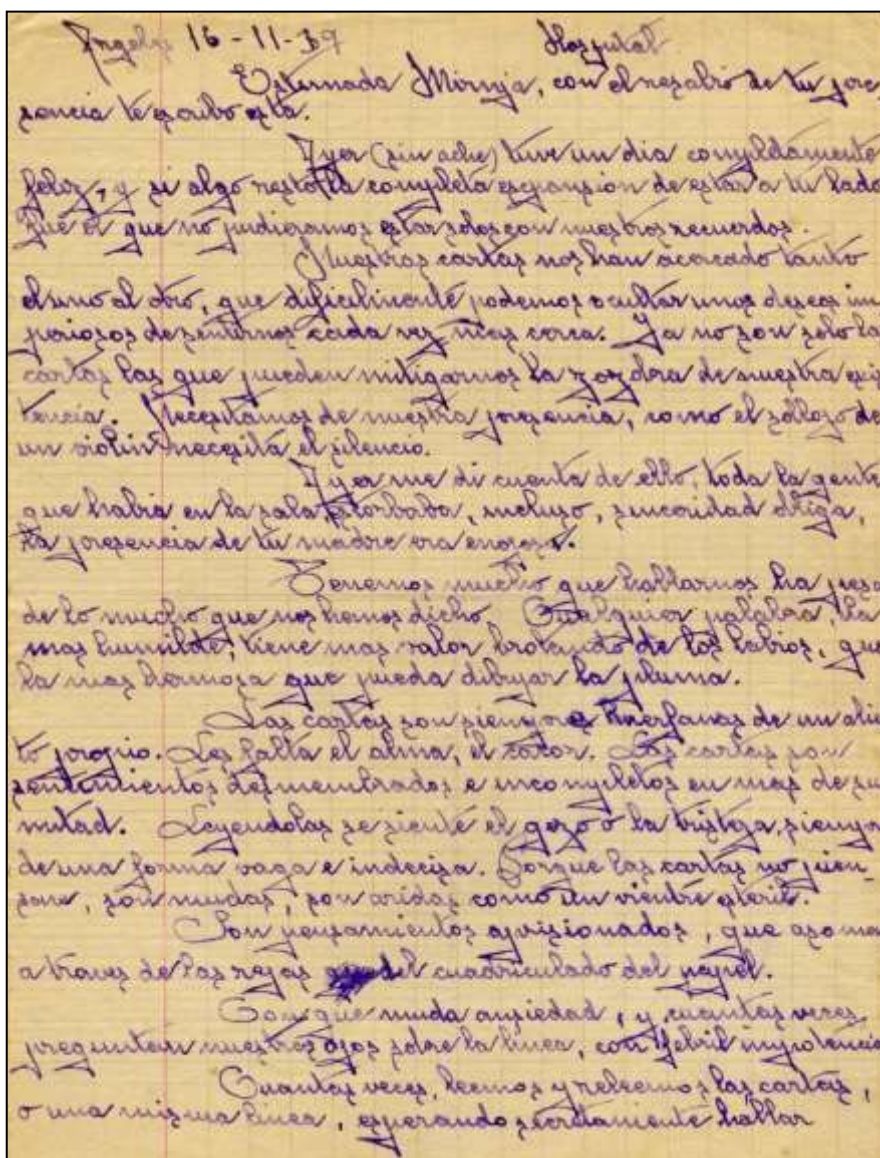 Angeles 16-11-39 Hospital
Estimada Mirnja, con el resabio de tu pre
sencia te escribo esta.
Ayer (sin ache) tuve un dia completamente
feliz, y si algo resto la completa espansion de estar a tu lado
fue el que no pudieramos estar solos con nuestros recuerdos.
Nuestras cartas nos han acercado tanto
el uno al otro, que dificilmente podemos ocultar unos deseos im
periosos de sentirnos cada vez mas cerca. Ya no son solo las
cartas las que pueden mitigarnos la de nuestra exis
tencia. Necesitamos de nuestra presencia, como el sollozo de
un violin necesita el silencio.
Ayer me di cuenta de ello, toda la gente
que habia en la sala, estorbaba, incluso, sinceridad obliga,
la presencia de tu madre era enojosa.
Tenemos mucho que hablarnos ha pesar
de lo mucho que nos hemos dicho. Cualquier palabra, la
mas humilde, tiene mas valor brotando de los labios, que
la mas hermosa que pueda dibujar la pluma.
Las cartas son siempre huerfanas de un alien
to propio. Les falta el alma, el calor. Las cartas son
sentimientos desmembrados e incompletos en mas de su
mitad. Leyendolas se siente el gozo o la tristeza, siempre
de una forma vaga e indecisa. Porque las cartas no pien_
san, son mudas, son aridas como un vientre esteril.
Son pensamientos aprisionados, que asoman
a traves de las rejas del cuadriculado del papel.
Con que muda ansiedad, y cuantas veces
preguntan nuestros ojos sobre la linea, con febril impotencia
Cuantas veces, leemos y releemos las cartas,
o una misma linea, esperando secretamente hallar